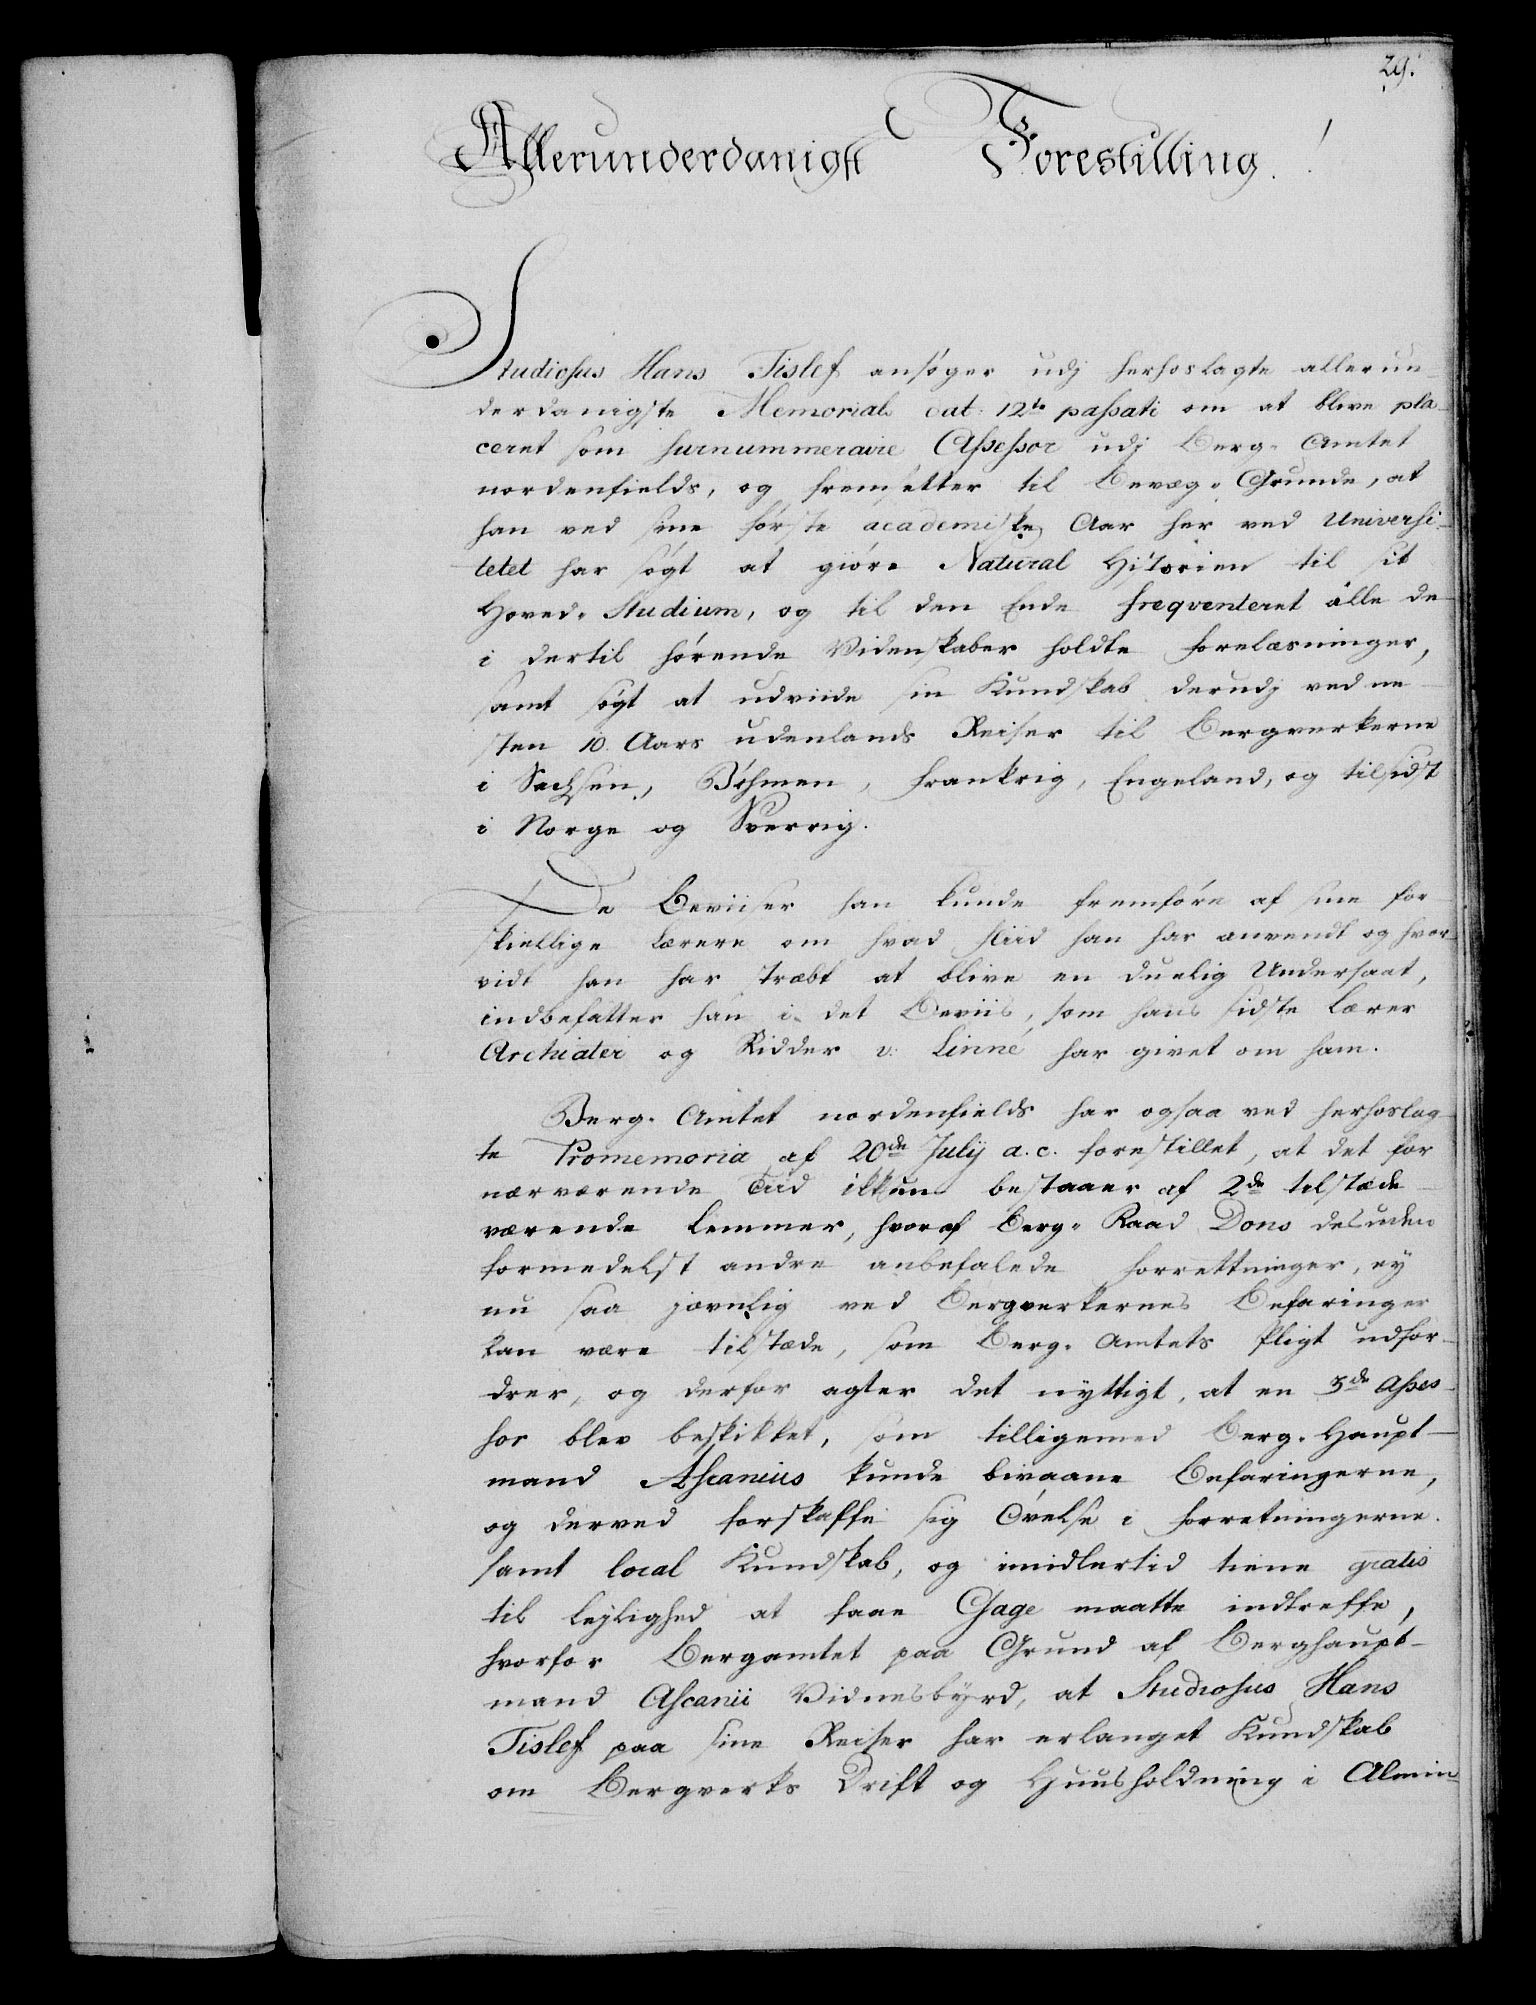 29.
Allerunderdanigst Forestilling.
Studiosus Hans Tislef ansøger udj herhoslagte allerun-
derdanigste Memorial dat: 12te passati om at blive pla-
ceret som surnummeraire Assessor udj Berg-Amtet
nordenfields, og fremsetter til Bevæg-Grunde, at
han ved sine første academiske Aar her ved Universi-
tetet har søgt at giøre Natural Historien til sit
Hoved-Studium, og til den Ende freqventeret alle de
i dertil hørende Videnskaber holdte Forelæsninger,
samt søgt at udviide sin Kundskab derudj ved ne-
sten 10 Aars udenlands Reiser til Bergverkerne
i Sachsen, Bøhmen, Frankrig, Engeland, og tilsidst
i Norge og Sverrig.
De Beviiser han kunde fremføre af sine for-
skiellige Lærere om hvad Fliid han har anvendt og hvor-
vidt han har stræbt at blive en duelig Undersaat,
indbefatter han i det Beviis, som hans sidste Lærer
Archiater og Ridder v: Linné har givet om ham.
Berg-Amtet nordenfields har ogsaa ved herhoslag-
te Promemoria af 20de Julij a. c. forestillet, at det for
nærværende Tiid ikkun bestaaer af 2de tilstæde-
værende Lemmer, hvoraf Berg-Raad Dons desuden
formedelst andre anbefalede Forrettninger, ey
nu saa jævnlig ved Bergverkernes Befaringer
kan være tilstæde, som Berg-Amtets Pligt udfor-
drer, og derfor agter det nyttigt, at en 3de Asses-
sor blev beskikket, som tilligemed Berg-Haupt-
mand Ascanius kunde bivaane Befaringerne,
og derved forskaffe sig Øvelse i Forretningerne
samt local Kundskab, og imidlertid tiene gratis
til Lejlighed at faae Gage maatte indtreffe,
hvorfor Bergamtet paa Grund af Berghaupt-
mand Ascanii Vidnesbyrd, at Studiosus Hans
Tislef paa sine Reiser har erlanget Kundskab
om Bergverks Drift og Huusholdning i Almin-